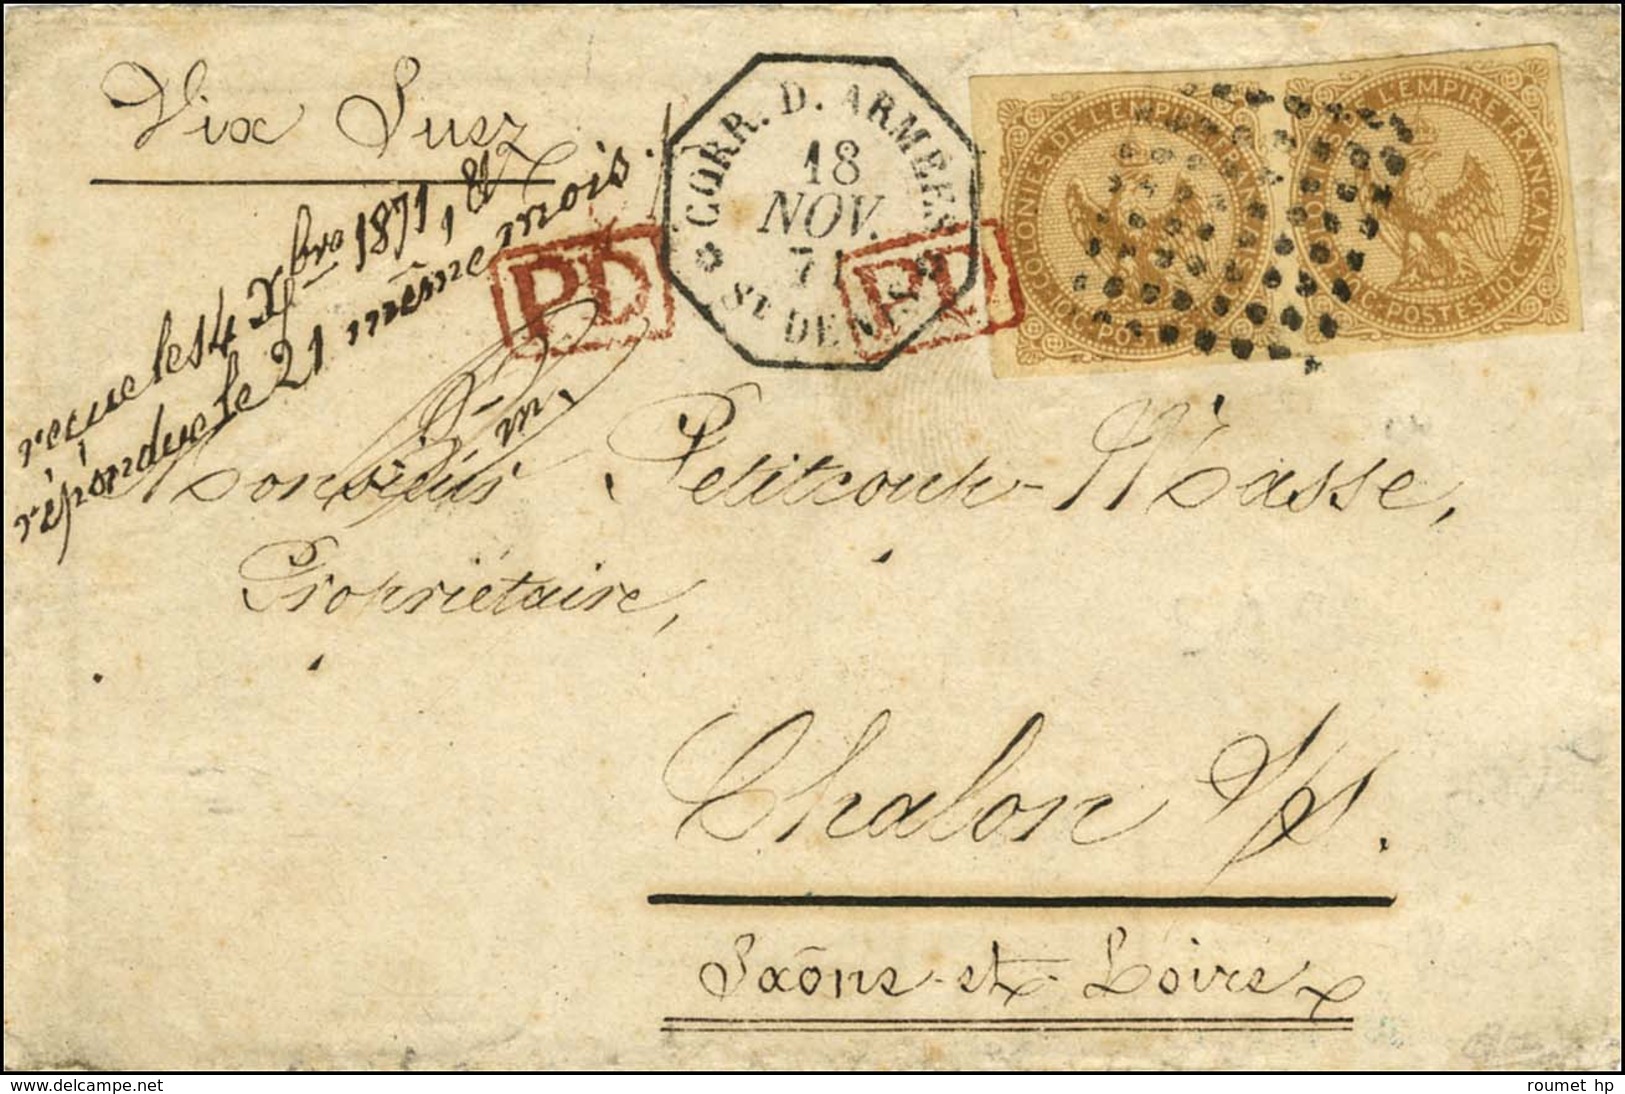 Via Suez
recue le 14 Xbre 1871, &
répondue le 21 même mois.
CORR. D. ARMÉES
18
NOV.
71
ST DENIS
PD
PD
COLONIES DE L'EMPIRE FRANÇAIS
10 C POSTES 10 C
COLONIES DE L'EMPIRE FRANÇAIS
10 C POSTES 10 C
Monsieur Petitcoup-Masse,
Propriétaire,
Chalon s/s.
Saône-et-Loire
roumet hp